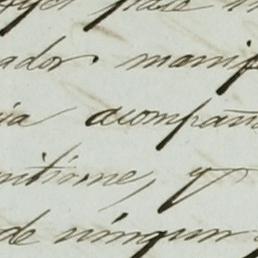 ador manif
ia acompaña
mitirme, y
de ningun